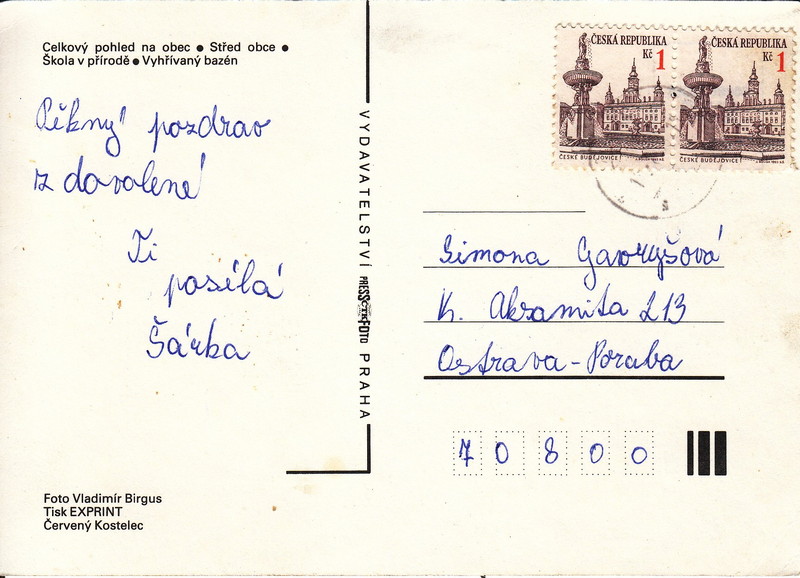 Celkový pohled na obec ● Střed obce ●
Škola v přírodě ● Vyhřívaný bazén
Pěkný pozdrav
z dovolené
Ti
posílá
Šárka
Foto Vladimír Birgus
Tisk EXPRINT
Červený Kostelec
VYDAVATELSTVÍ PRESSFOTO PRAHA
ČESKÁ REPUBLIKA
Kč 1
ČESKÉ BUDĚJOVICE
ČESKÁ REPUBLIKA
Kč 1
ČESKÉ BUDĚJOVICE
Simona Gavryšová
K. Aksamita 213
Ostrava-Poruba
70800